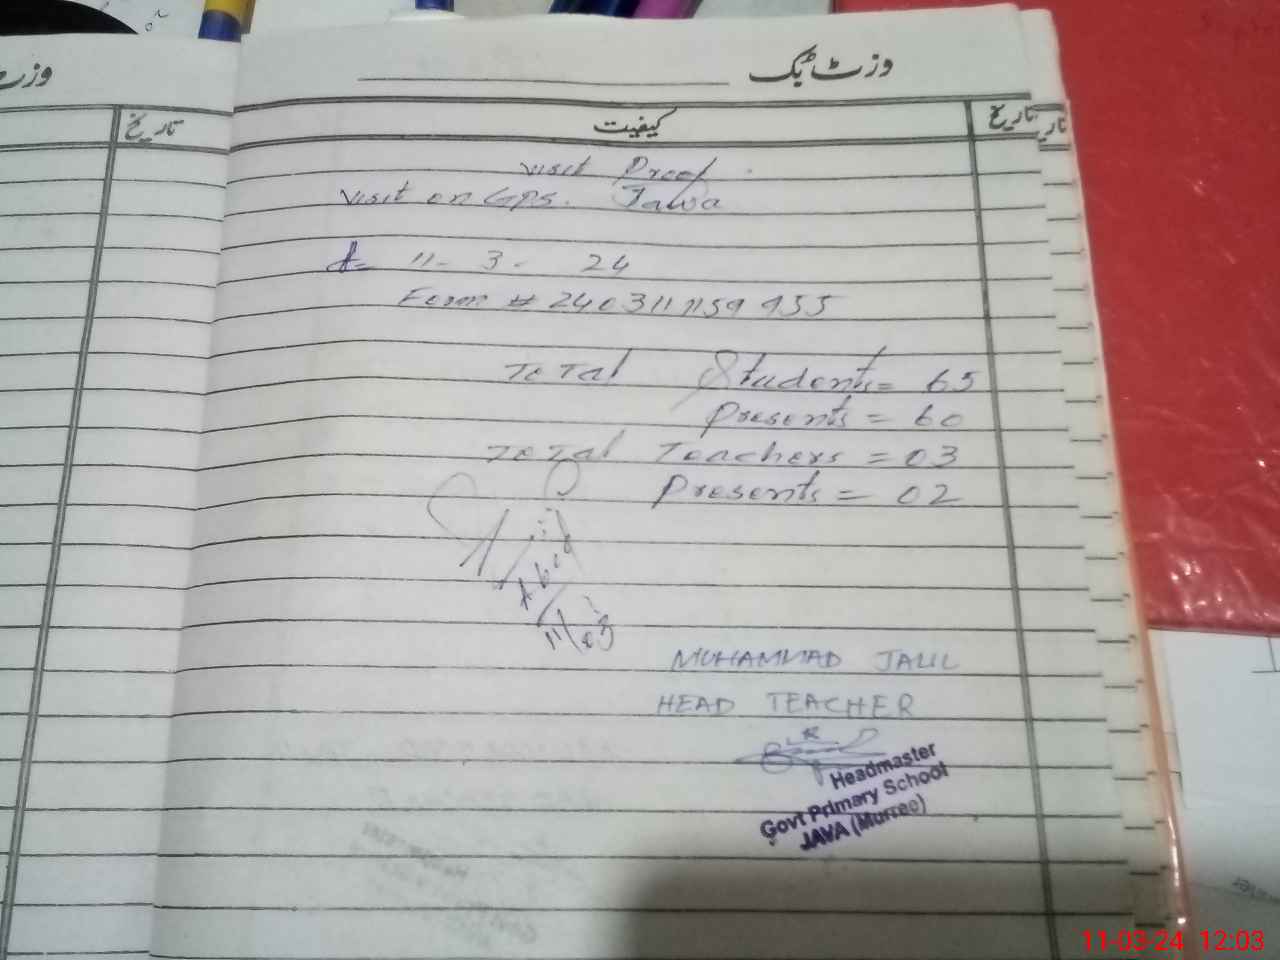 وزٹ بک
تاریخ
کیفیت
تاریخ
visit Proof
visit on GPS. Jawa
11- 3- 24
Form # 2403111159955
Total Students = 65
Presents = 60
Total Teachers = 03
Presents = 02
11/03
MUHAMMAD JALIL
HEAD TEACHER
Headmaster
Govt Primary School
JAVA (Murree)
11-03-24 12:03